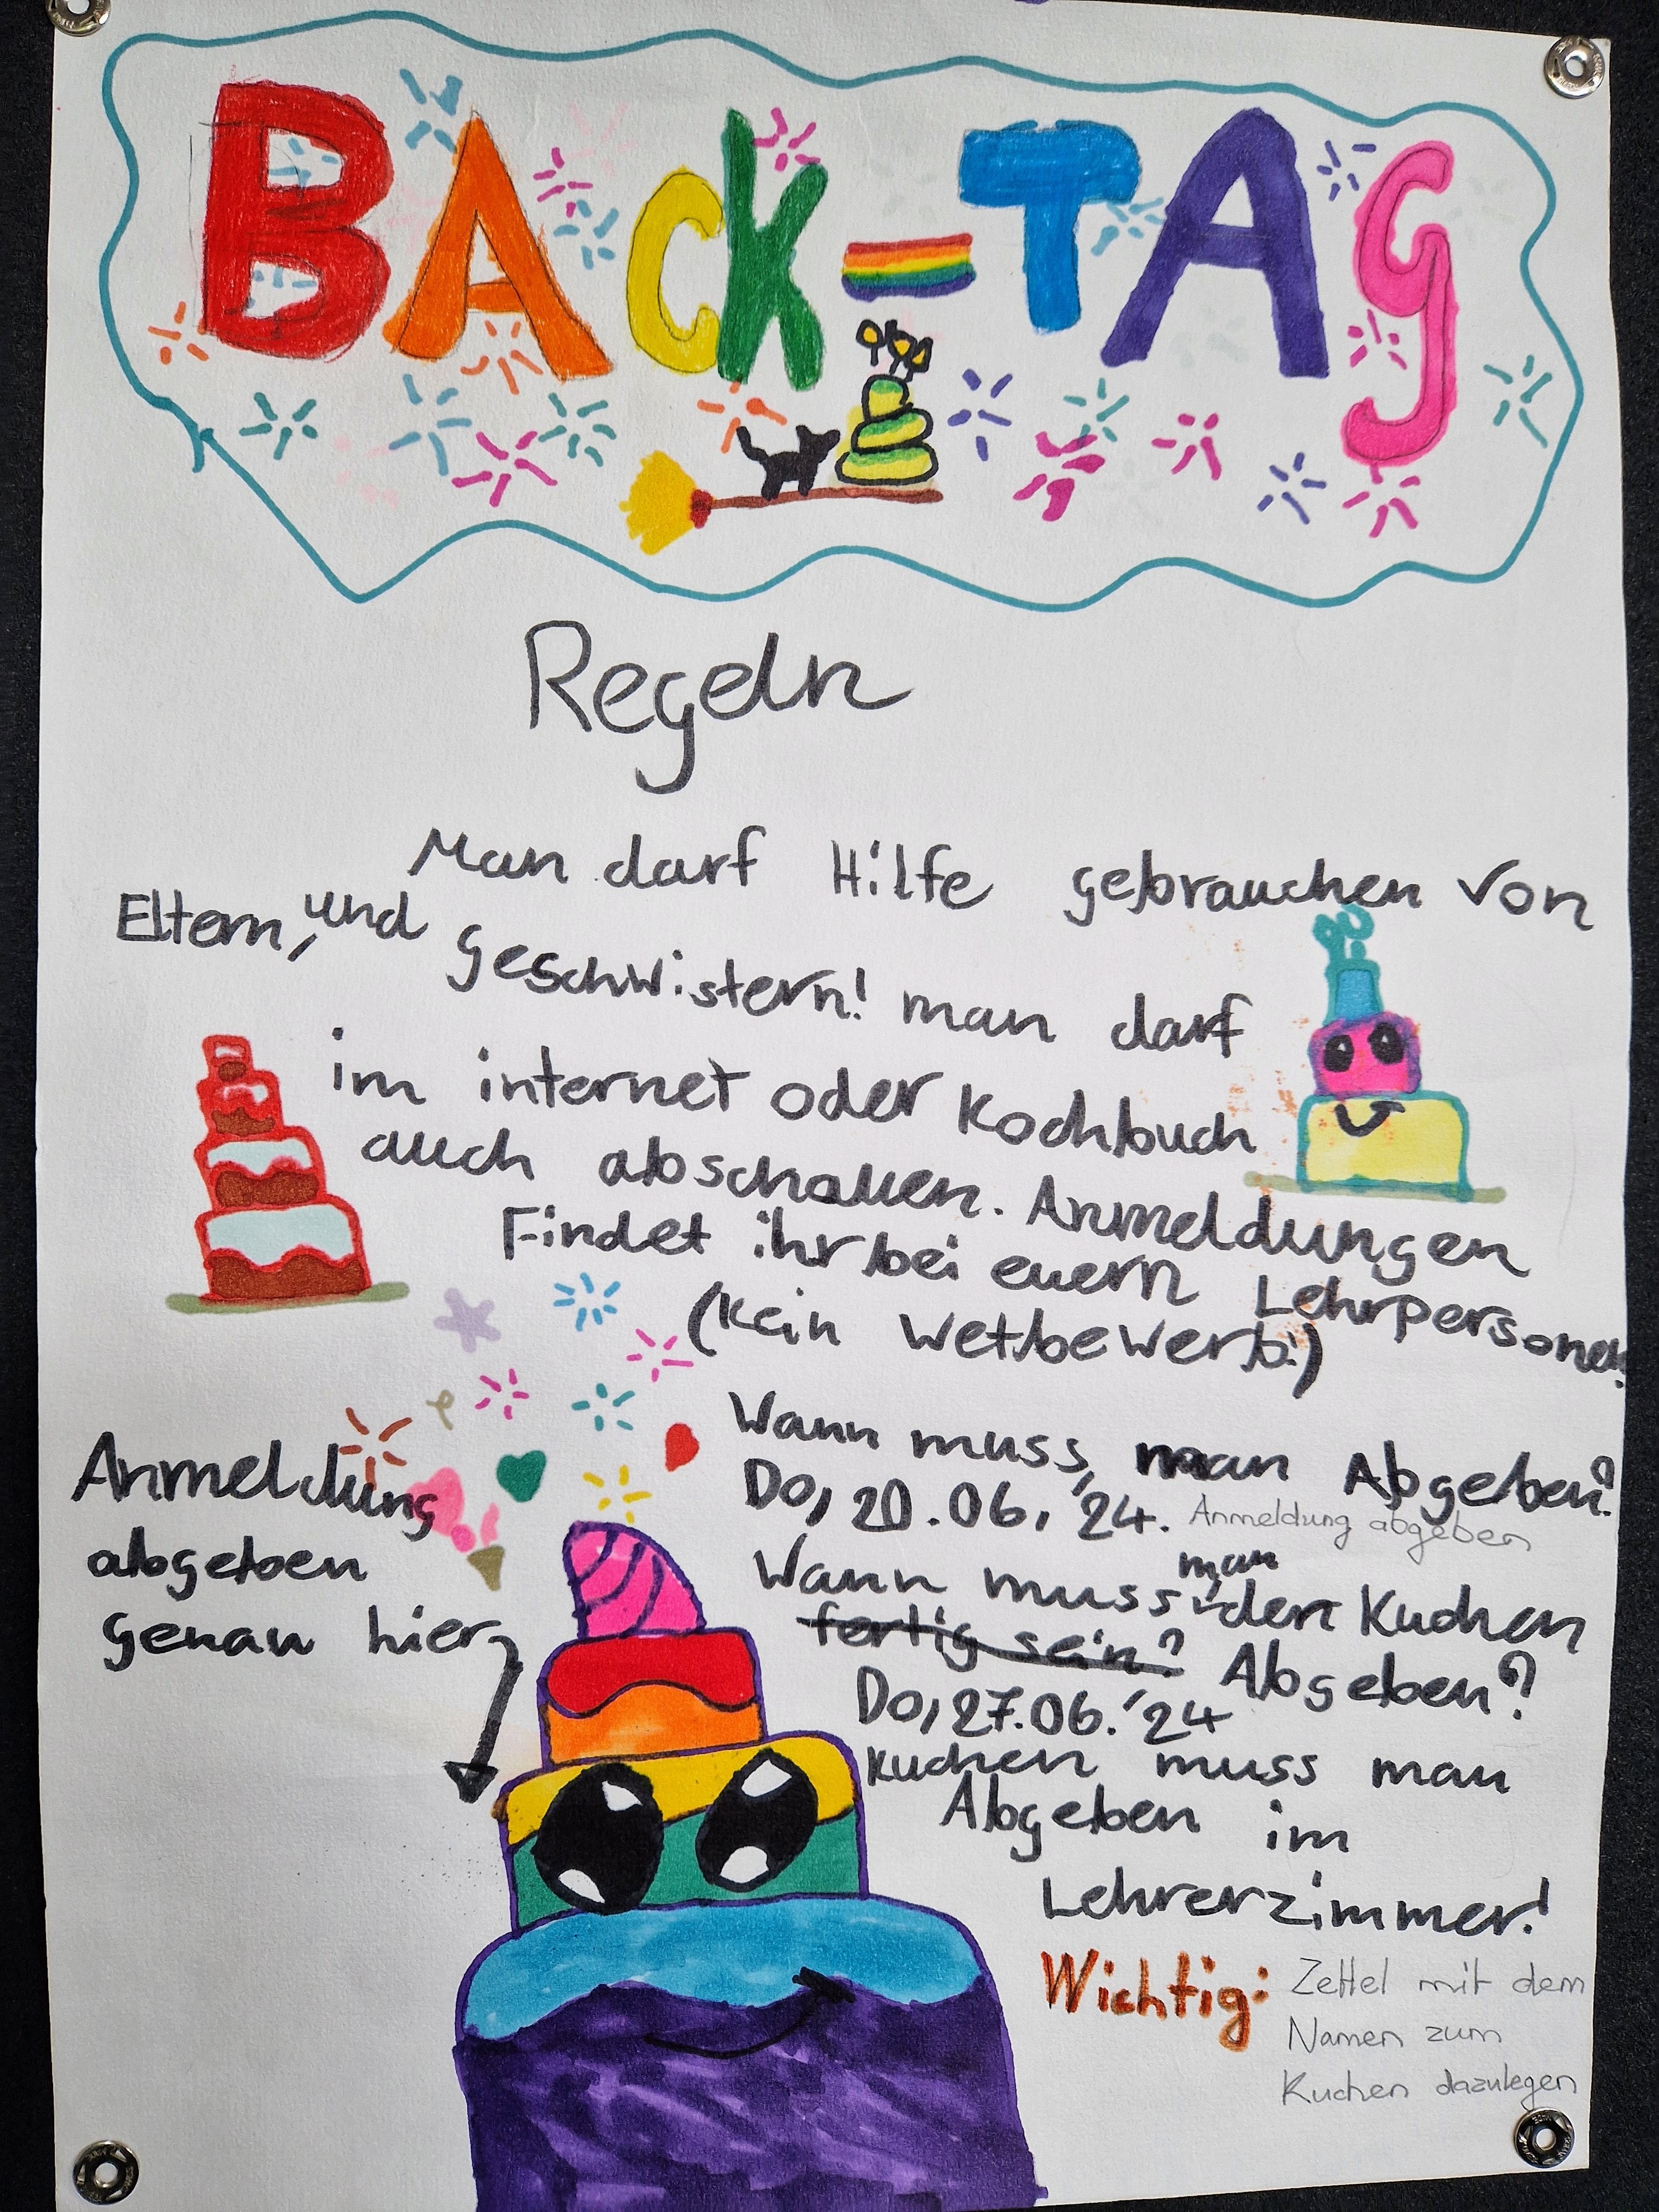 BACK-TAG
Regeln
Man darf Hilfe gebrauchen von
Eltern, und Geschwistern! man darf
im internet oder Kochbuch
auch abschauen. Anmeldungen
Findet ihr bei euern Lehrpersonen!
(Kein Wettbewerb!)
Anmeldung
abgeben
genau hier
Wann muss man Abgeben?
Do, 20.06. '24. Anmeldung abgeben
Wann muss man den Kuchen
fertig sein? Abgeben?
Do, 27.06. '24
Kuchen muss man
Abgeben im
Lehrerzimmer!
Wichtig: Zettel mit dem
Namen zum
Kuchen dazulegen